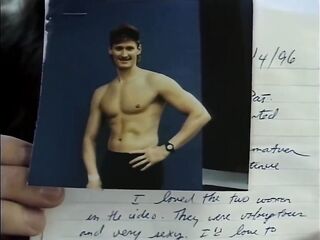 /4/96
Pat.
I loved the two women
in the video. They were voluptuous
and very sexy. I'd love to